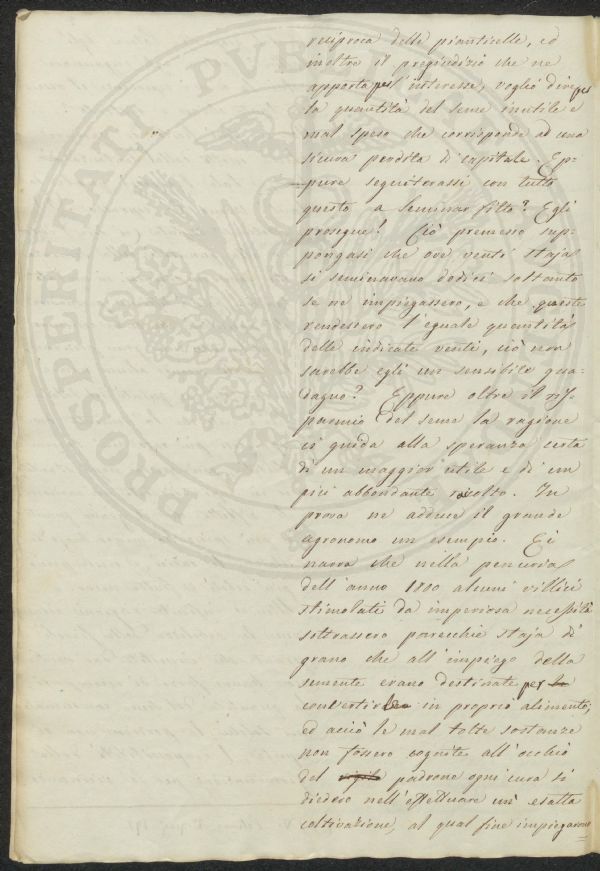 reciproca delle pianticelle, ed
inoltre il pregiudizio che ne
apporta pel l'interesse, voglio dire pel
la quantità del seme inutile e
mal speso che corrisponde ad una
sicura perdita di capitale. Ep-
pure seguiterassi con tutto
questo a seminar fitto? Egli
prosegue! Ciò premesso sup-
pongasi che ove venti staja
si seminavano dodici soltanto
se ne impiegassero, e che queste
rendessero l'eguale quantità
delle indicate venti, ciò non
sarebbe egli un sensibile gua-
dagno? Eppure oltre il ris-
parmio del seme la ragione
ci guida alla speranza certa
di un maggior utile e di un
più abbondante racolto. In
prova ne adduce il grande
agronomo un esempio. Ei
narra che nella penuria
dell'anno 1800 alcuni villici
stimolati da imperiosa necessità
sottrassero parecchie staja di
grano che all'impiego della
semente erano destinate per
convertirle in proprio alimento;
ed acciò le mal tolte sostanze
non fossero cognite all'occhio
del padrone ogni cura si
diedero nell'effettuare un'esatta
coltivazione, al qual fine impiegarono
PROSPERITATI PUB